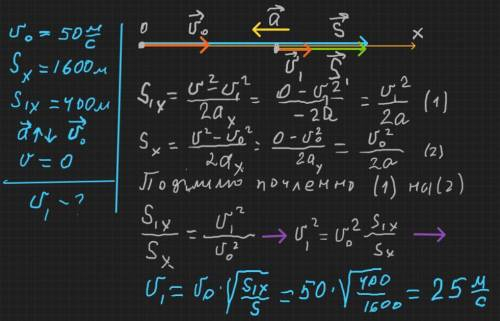 v₀ = 50 м/с
Sₓ = 1600 м
S₁ₓ = 400 м
a⃗ ↑↓ v⃗₀
v = 0
v₁ - ?
0 v⃗₀ a⃗ S⃗ x
v⃗₁ S⃗₁
S₁ₓ = (v² - v₁²)/(2aₓ) = (0 - v₁²)/(-2a) = v₁²/(2a) (1)
Sₓ = (v² - v₀²)/(2aₓ) = (0 - v₀²)/(2aₓ) = v₀²/(2a) (2)
Поділимо почленно (1) на (2)
S₁ₓ/Sₓ = v₁²/v₀² → v₁² = v₀² S₁ₓ/Sₓ →
v₁ = v₀ · √(S₁ₓ/S) = 50 · √(400/1600) = 25 м/с